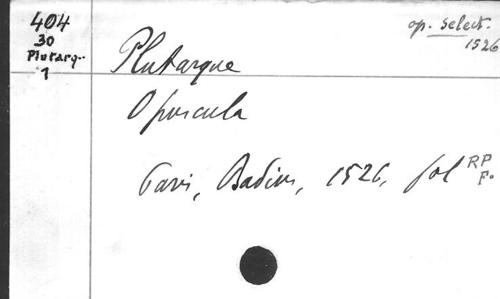 404
30
Plutarq.
1
op. select.
1526
Plutarque
Opuscula
Paris, Badius, 1526, fol
RP
F.